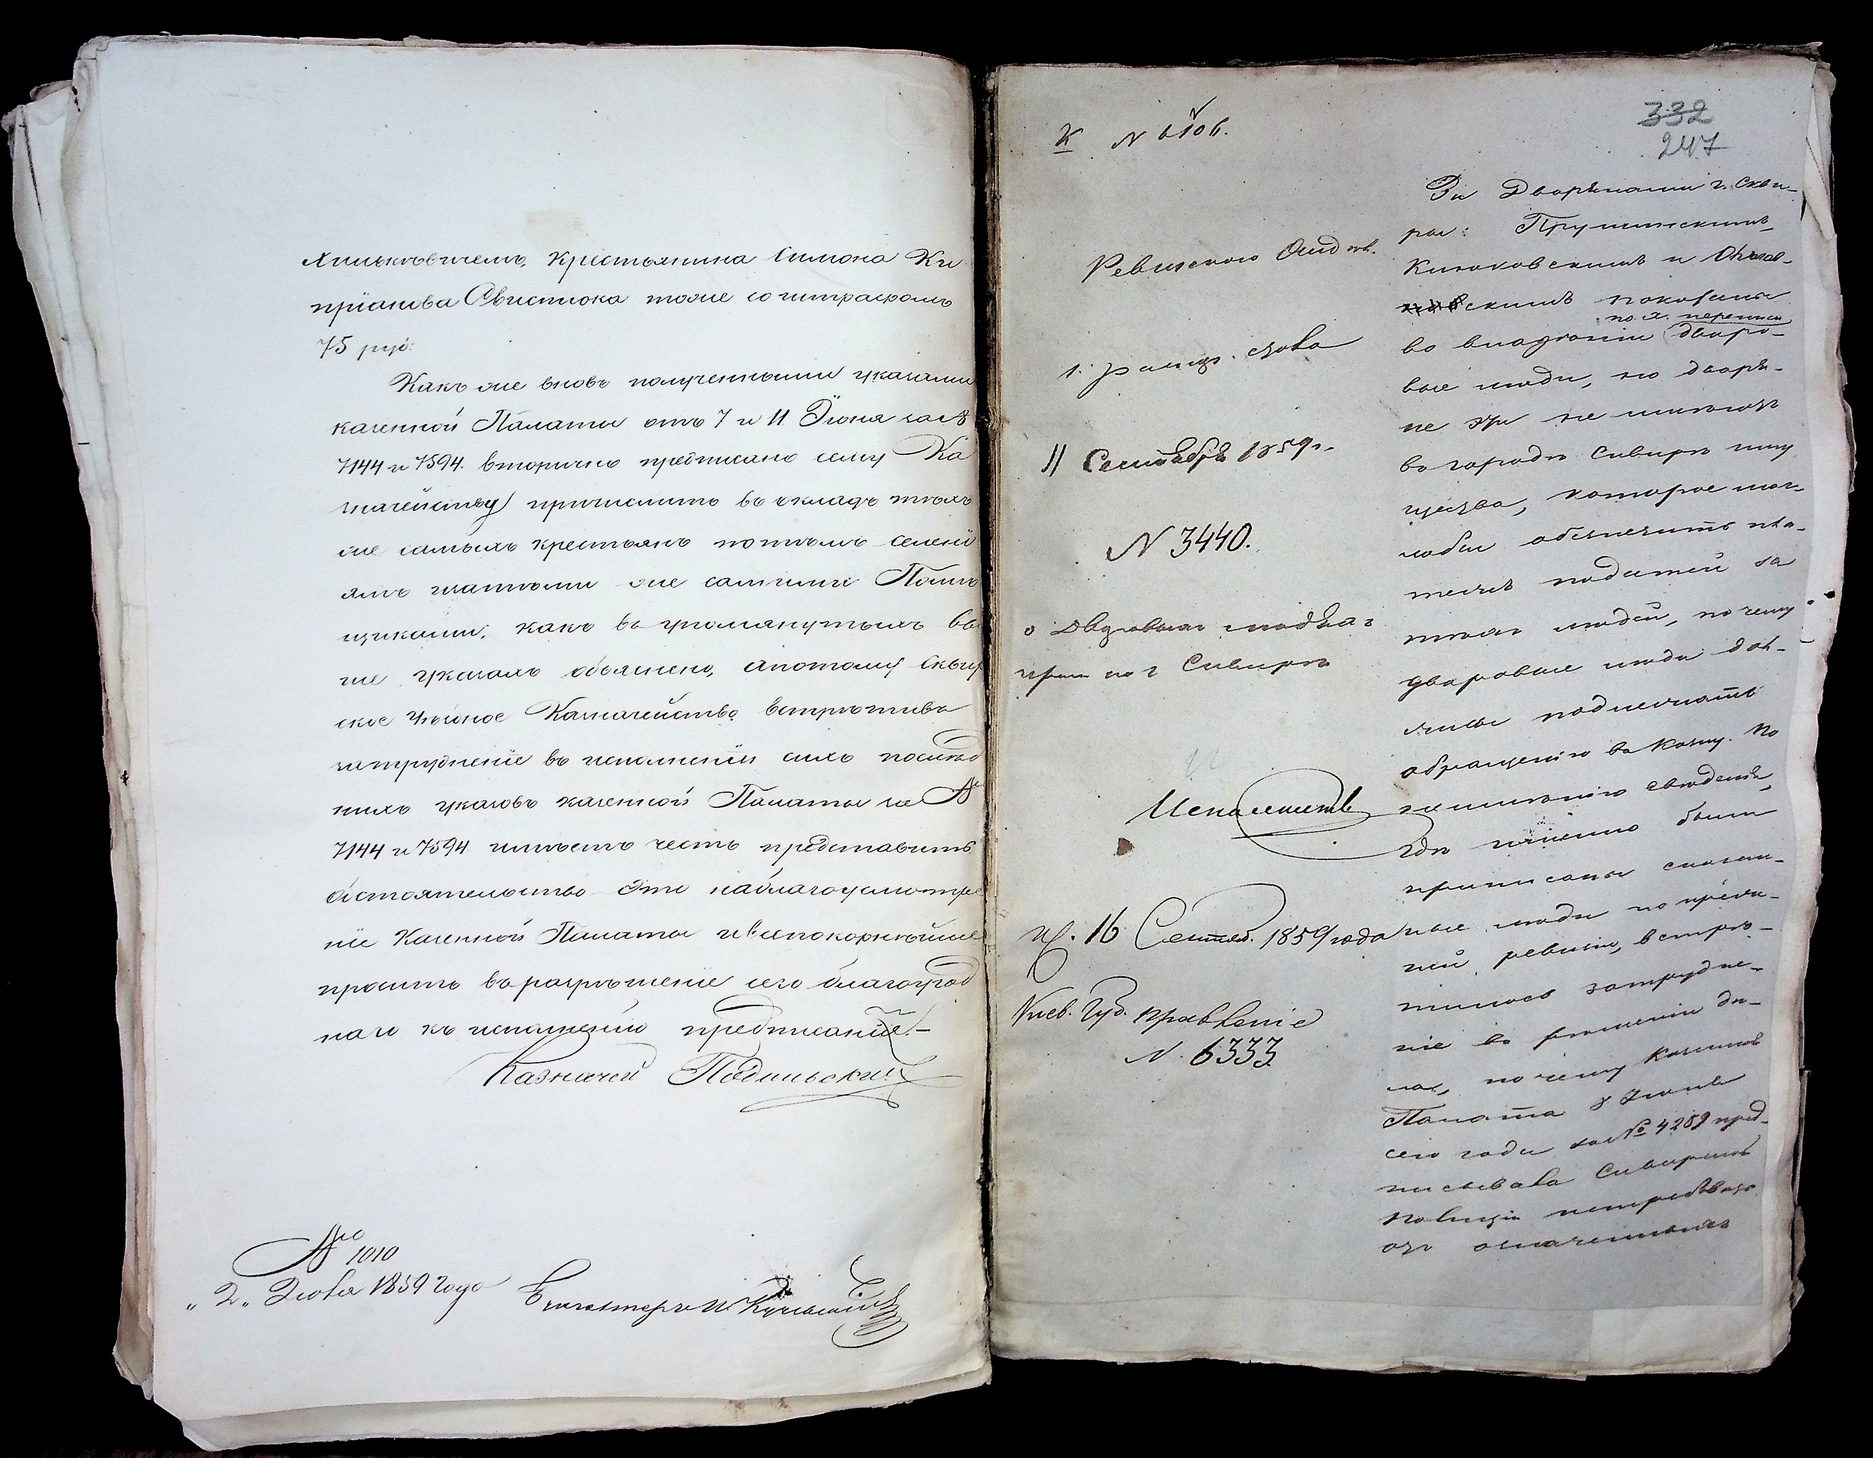 крестьянина Симона Ки
пріанова Свистюка тоже со штрафомъ
75 руб:
Какъ же вновь полученными указами
казенной Палаты отъ 7 и 11 Іюня за №
7144 и 7594. вторично предписано сему Ка
значейству причислить въ окладъ тѣхъ
же самыхъ крестьянъ по тѣмъ селені
ямъ же самими Помѣ
щиками, какъ въ упомянутыхъ вы
ше указахъ объяснено, а потому Сквир
ское Уѣздное Казначейство встрѣтивъ
затрудненіе въ исполненіи сихъ послѣд
нихъ указовъ казенной Палаты за №
7144 и 7594 имѣетъ честь представить
обстоятельство это на благоусмотре
ніе Казенной Палаты и всепокорнѣйше
просить въ разрѣшеніе сего благоугод
наго къ исполненію предписанія.
Казначей Подильскій
№ 1010
"2" Іюля 1859 года
Бухгалтеръ
К N 6106.
332
247
Ревизского Отд
1. разр. стола
11 Сентября 1859 г.
N 3440.
о дворовыхъ людяхъ
по г Сквирѣ
Исполнить
16 Сентяб. 1859 года
Киев. Губ. Правленіе
N. 6333
За Дворянами г. Скви-
ры: Прушинскимъ
и
скимъ показаны
по X. переписи
во владѣніи дворо-
вые люди, но дворя-
не эти не имѣютъ
въ городѣ Сквирѣ иму
щества, которое мог-
лобы обезпечить пла-
тежъ податей за
тѣхъ людей, почему
дворовые люди дол-
жны подлежать
обращенію въ казну. По
неимѣнію свѣденія,
гдѣ именно были
приписаны сказан-
ные люди по преж-
ней ревизіи, встрѣ-
тилось затрудне-
ніе въ рѣшеніи дѣ-
ла, почему Казенная
Палата 8 Іюня
сего года за № 4259 пред-
писывала Сквирской
Полиціи истребовать
отъ означенныхъ